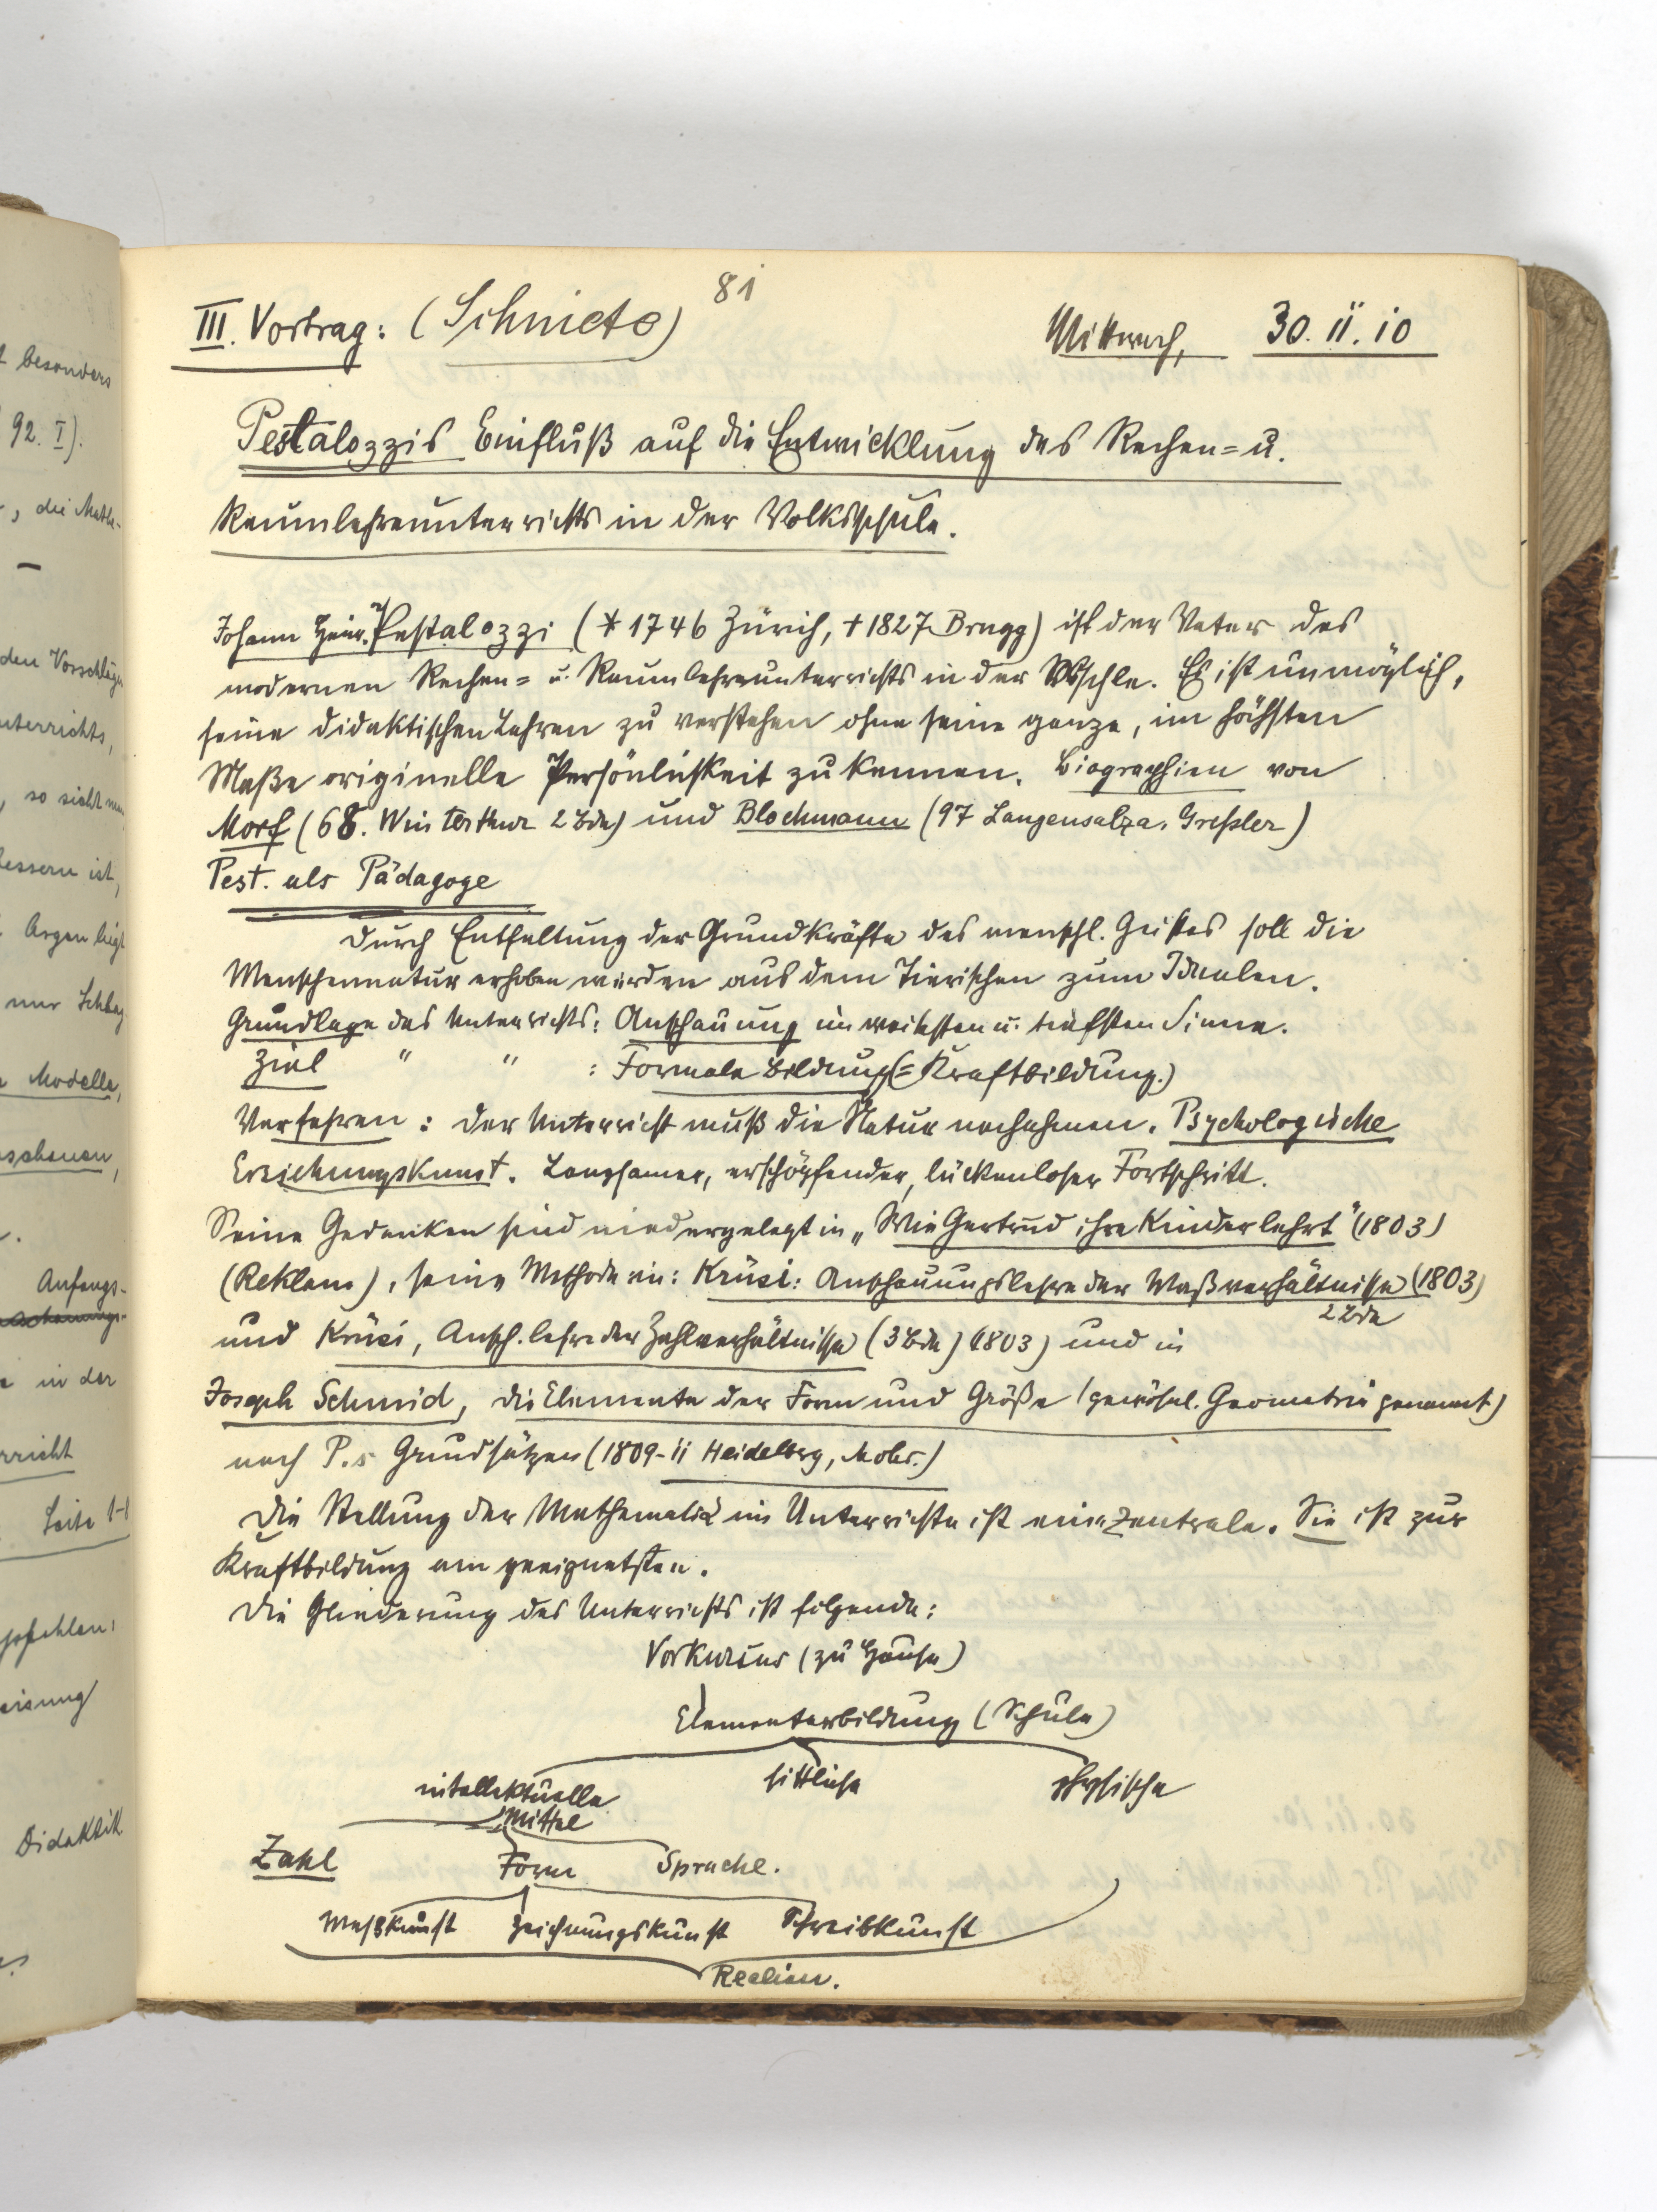 81
III. Vortrag: (Schnicte) Mittwoch, 30.11.10
Pestalozzis Einfluß auf die Entwicklung des Rechen= u.
Raumlehreunterrichts in der Volksschule.
Johann Heinr. Pestalozzi (* 1746 Zürich, † 1827 Brugg) ist der Vater des
modernen Rechen= u. Raumlehreunterrichts in der Vschle. Es ist unmöglich,
seine didaktischen Lehren zu verstehen ohne seine ganze, im höchsten
Maße originelle Persönlichkeit zu kennen. Biographien von
Morf (68. Winterthur 2 Bde) und Blochmann (97 Langensalza, Greßler)
Pest. als Pädagoge
Durch Entfaltung der Grundkräfte des menschl. Geistes soll die
Menschennatur erhoben werden aus dem Tierischen zum Idealen.
Grundlage des Unterrichts: Anschauung im weitesten u. tiefsten Sinne.
Ziel " " : Formale Bildung (= Kraftbildung.)
Verfahren: Der Unterricht muß die Natur nachahmen. Psychologische
Erziehungskunst. Langsamer, erschöpfender, lückenloser Fortschritt.
Seine Gedanken sind niedergelegt in „Wie Gertrud ihre Kinder lehrt" (1803)
(Reklam), seine Methode in: Krüsi: Anschauungslehre der Maßverhältnisse (1803)
2 Bde
und Krüsi, Ansch. lehre der Zahlverhältnisse (3 Bde) (1803) und in
Joseph Schmid, die Elemente der Form und Größe (gewöhnl. Geometrie genannt)
nach P.s Grundsätzen (1809-11 Heidelberg, Mohr.)
Die Stellung der Mathematik im Unterrichte ist eine zentrale. Sie ist zur
Kraftbildung am geeignetsten.
Die Gliederung des Unterrichts ist folgende:
Vorkursus (zu Hause)
Elementarbildung (Schule)
intellektuelle sittliche physische
Mittel
Zahl Form Sprache.
Meßkunst Zeichnungskunst Schreibkunst
Realien.
besonders
92. I).
, die Mathe-
den Vorschlägen
unterrichts,
, so sieht man
bessern ist,
Argen liegt
nur Schlag
Modelle,
Anfangs-
in der
rricht
Seite 1-1
Didaktik